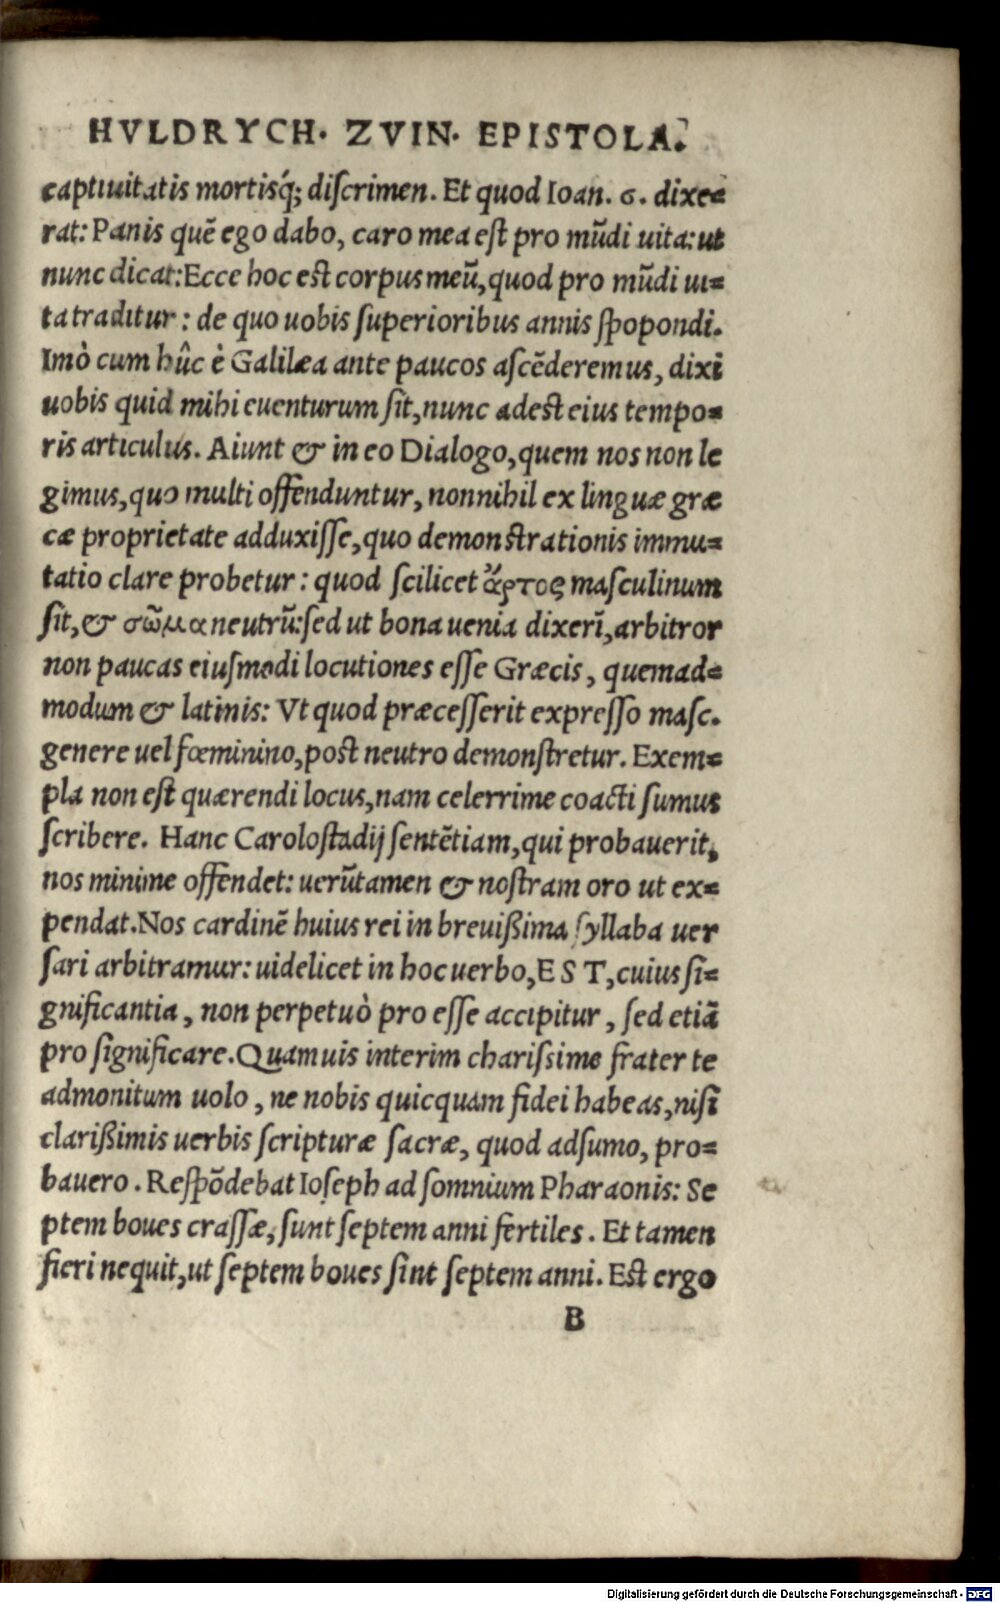 HVLDRYCH· ZVIN· EPISTOLA.
captiuitatis mortisq́; discrimen. Et quod Ioan. 6. dixe=
rat: Panis quē ego dabo, caro mea est pro mūdi uita: ut
nunc dicat: Ecce hoc est corpus meū, quod pro mūdi ui=
ta traditur : de quo uobis superioribus annis spopondi.
Imò cum hûc è Galilæa ante paucos ascēderemus, dixi
uobis quid mihi euenturum sit, nunc adest eius tempo=
ris articulus. Aiunt & in eo Dialogo, quem nos non le
gimus, quo multi offenduntur, nonnihil ex linguæ græ
cæ proprietate adduxisse, quo demonstrationis immu=
tatio clare probetur : quod scilicet ἄρτος masculinum
sit, & σῶμα neutrū: sed ut bona uenia dixerī, arbitror
non paucas eiusmodi locutiones esse Græcis, quemad=
modum & latinis: Vt quod præcesserit expresso masc.
genere uel fœminino, post neutro demonstretur. Exem=
pla non est quærendi locus, nam celerrime coacti sumus
scribere. Hanc Carolostadij sentētiam, qui probauerit,
nos minime offendet: uerūtamen & nostram oro ut ex=
pendat. Nos cardinē huius rei in breuißima syllaba uer
sari arbitramur: uidelicet in hoc uerbo, E S T, cuius si=
gnificantia, non perpetuò pro esse accipitur, sed etiā
pro significare. Quamuis interim charissime frater te
admonitum uolo, ne nobis quicquam fidei habeas, nisi
clarißimis uerbis scripturæ sacræ, quod adsumo, pro=
bauero. Respōdebat Ioseph ad somnium Pharaonis: Se
ptem boues crassæ, sunt septem anni fertiles. Et tamen
fieri nequit, ut septem boues sint septem anni. Est ergo
B
Digitalisierung gefördert durch die Deutsche Forschungsgemeinschaft - DFG